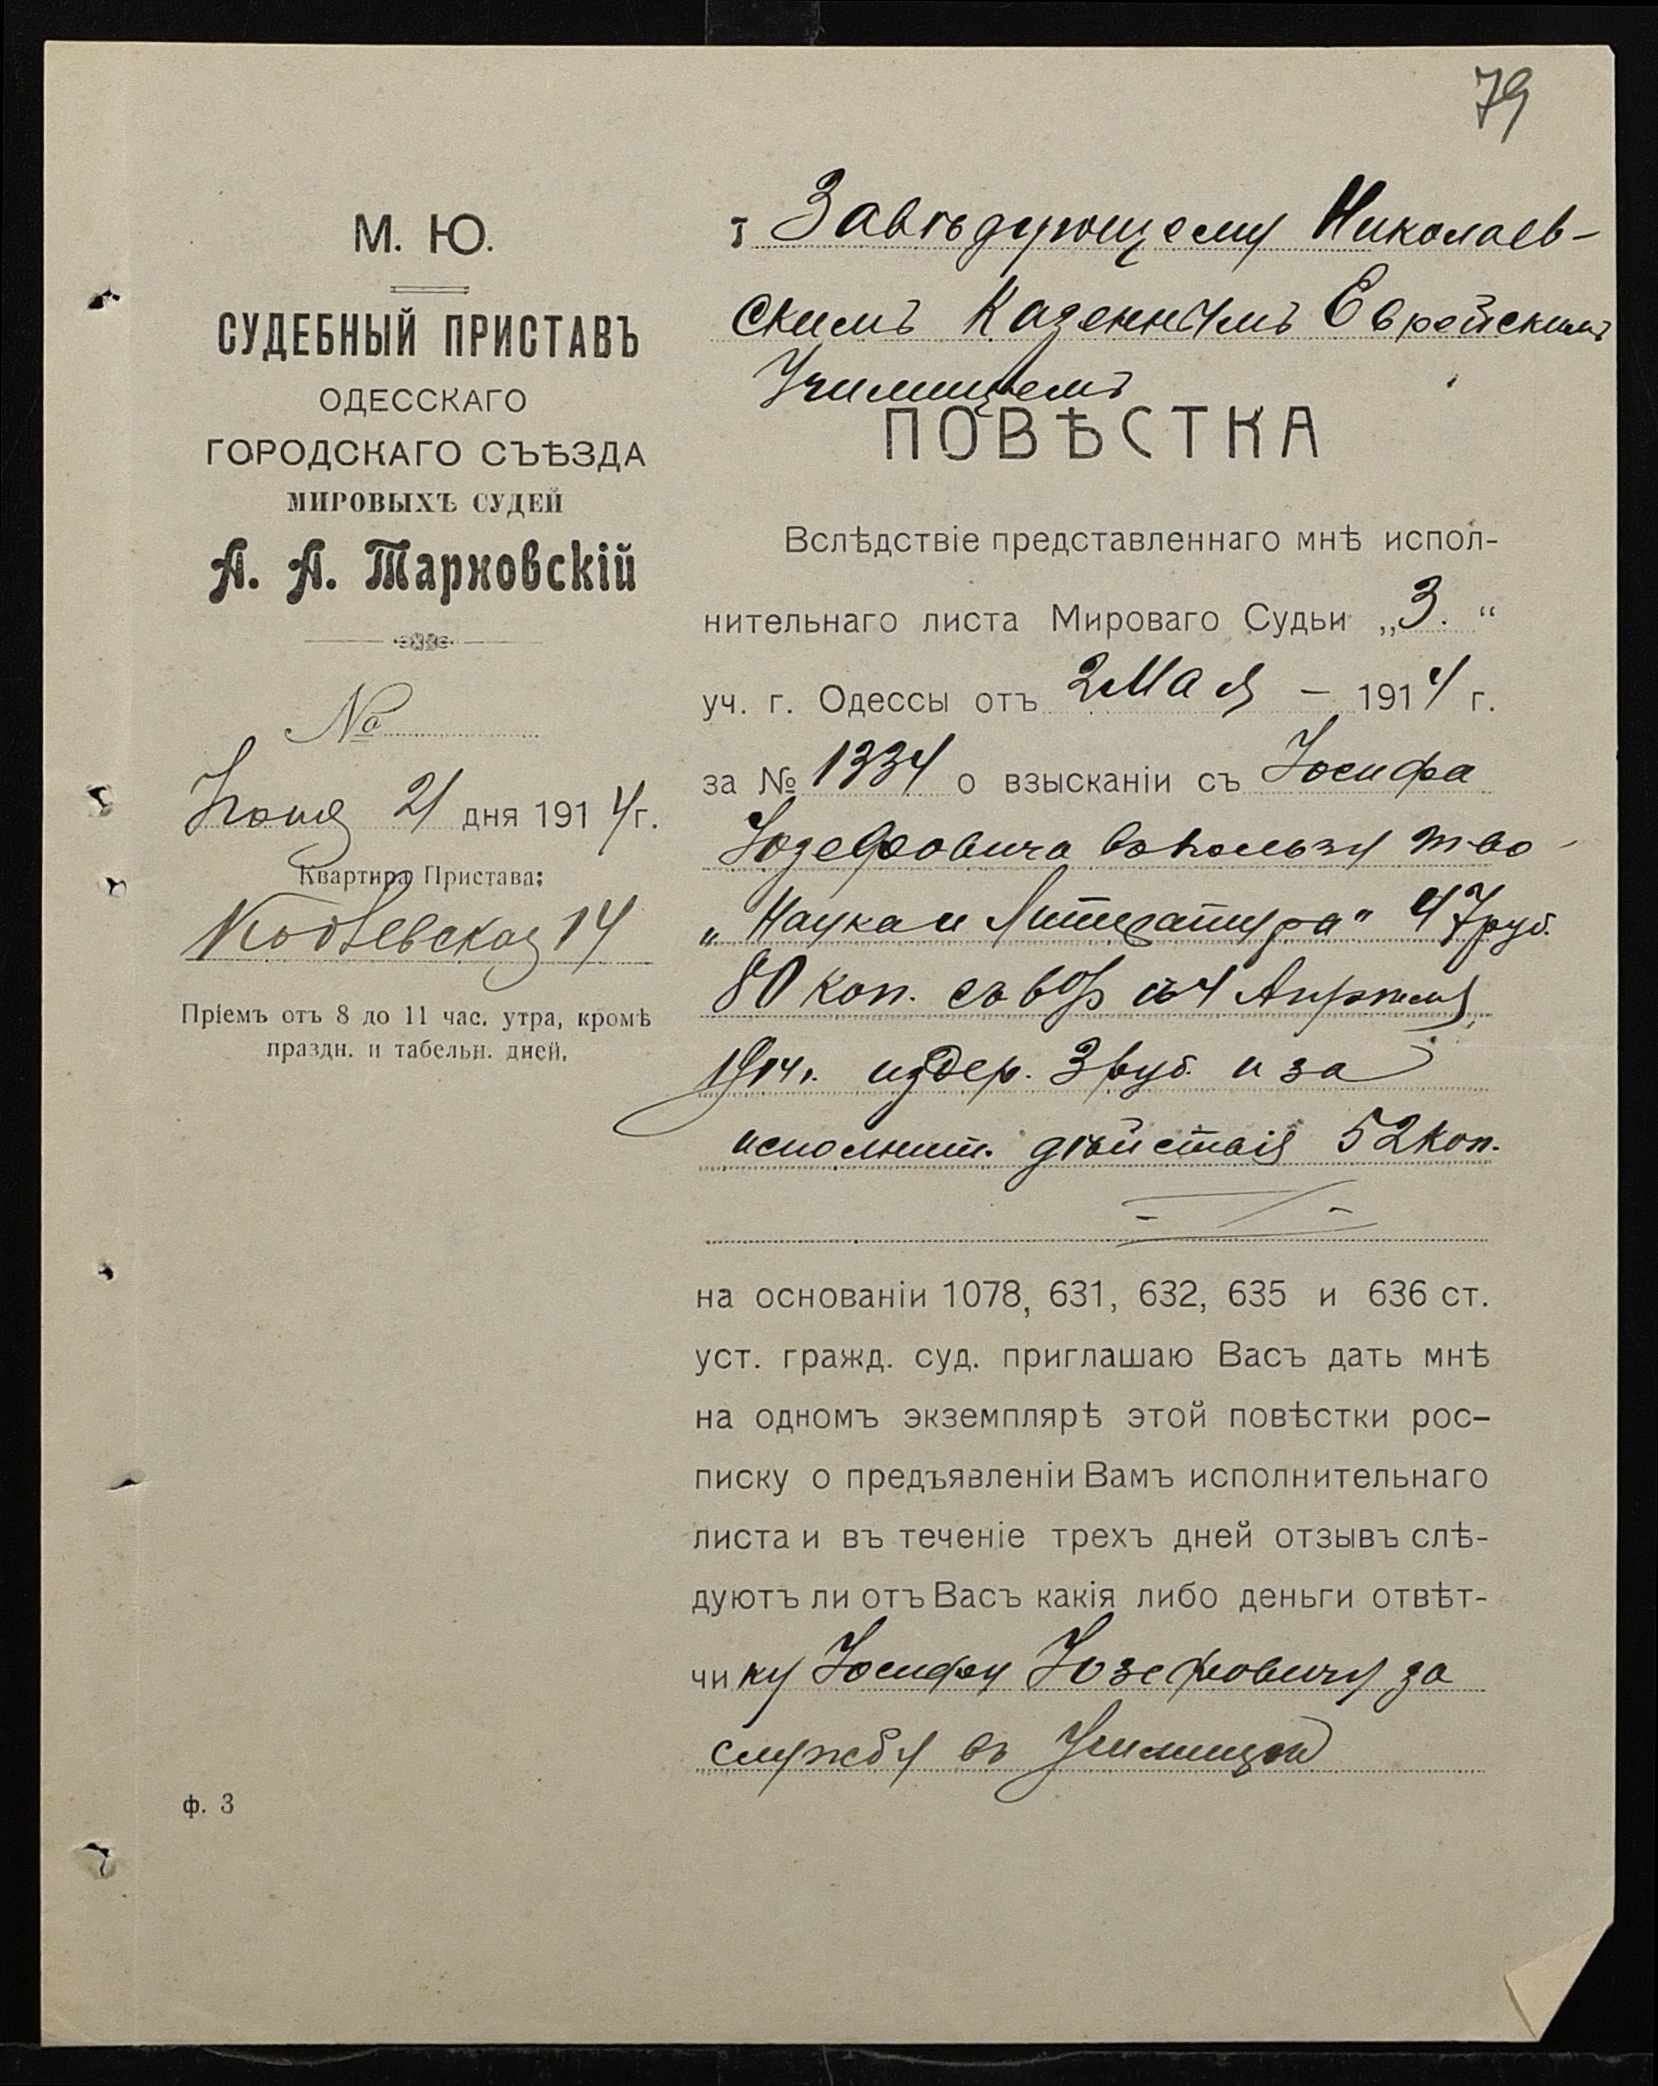 79
М. Ю.
СУДЕБНЫЙ ПРИСТАВЪ
ОДЕССКАГО
ГОРОДСКАГО СЪѢЗДА
МИРОВЫХЪ СУДЕЙ
А. А. Тарновскій
№
Іюня 21 дня 1914 г.
Квартира Пристава:
14
Пріемъ отъ 8 до 11 час. утра, кромѣ
праздн. и табельн. дней.
ф. 3
Завѣдующему Николаев-
скимъ Казеннымъ Еврейскимъ
Училищемъ
ПОВѢСТКА
Вслѣдствіе представленнаго мнѣ испол-
нительнаго листа Мироваго Судьи „3.“
уч. г. Одессы отъ 2 Мая – 1914 г.
за № 1334 о взысканіи съ Іосифа
Іозефовича въ пользу т-во
„Наука и Литература" 47 руб.
80 коп. съ % съ 4 Апрѣля
1914 г. издер. 3 руб. и за
исполнит. дѣйствія 52 коп.
на основаніи 1078, 631, 632, 635 и 636 ст.
уст. гражд. суд. приглашаю Васъ дать мнѣ
на одномъ экземплярѣ этой повѣстки рос-
писку о предъявленіи Вамъ исполнительнаго
листа и въ теченіе трехъ дней отзывъ слѣ-
дуютъ ли отъ Васъ какія либо деньги отвѣт-
чику Іосифу Іозефовичу за
службу въ Училищѣ